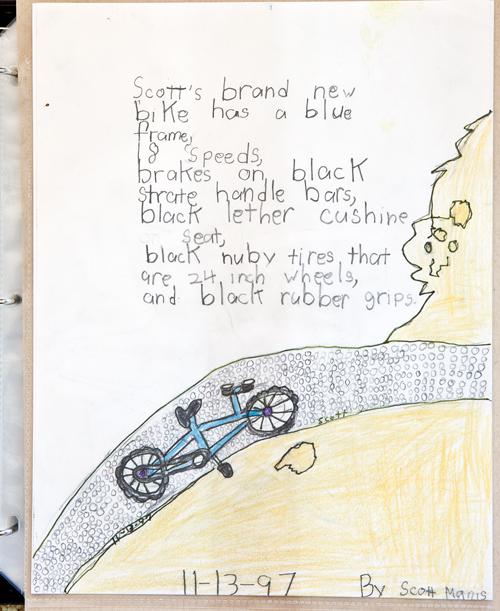 Scott's brand new
bike has a blue
frame,
18 speeds,
brakes on black
strate handle bars,
black lether cushine
seat,
black nuby tires that
are 24 inch wheels,
and black rubber grips.
scott
11-13-97
11-13-97
By Scott Manis